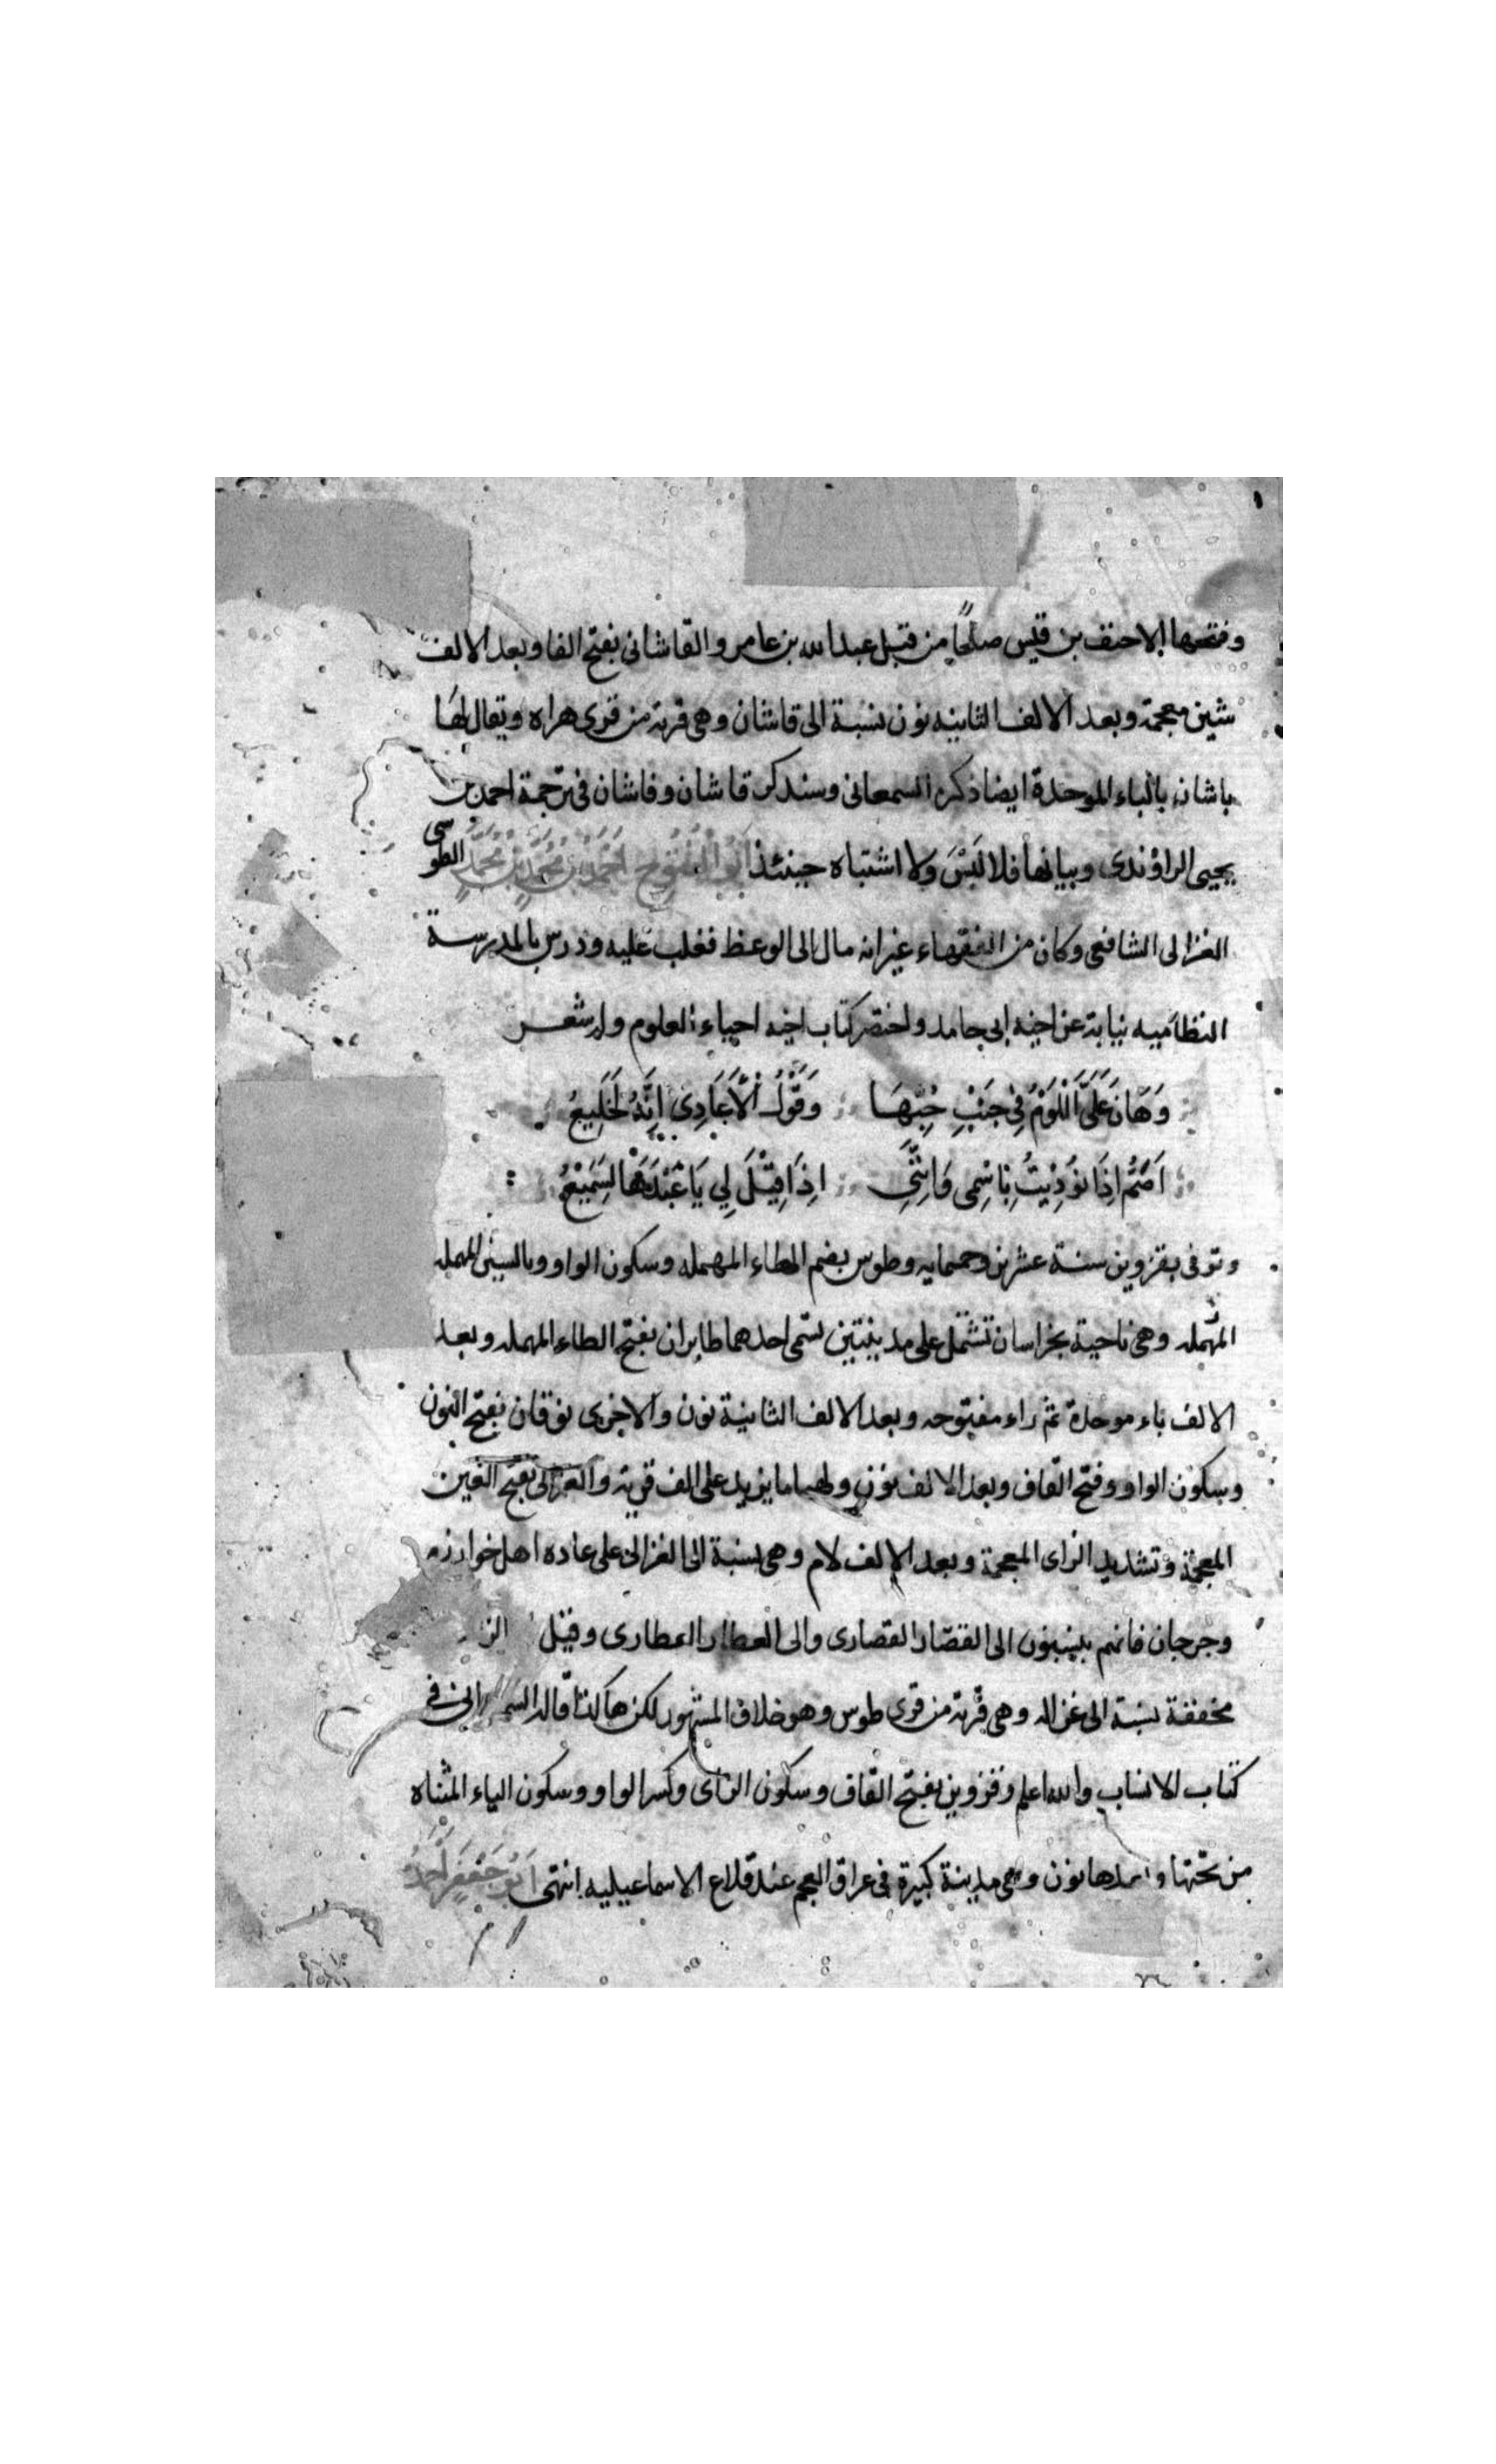 وفتحها الاحنف بن قيس صلحًا من قبل عبد الله بن عامر والقاشانى بفتح الفا وبعد الالف
شين معجمة وبعد الالف الثانيه نون نسبة الى قاشان وهى قرية من قرى هراه ويقال لها
باشان بالباء الموحدة ايضا ذكره السمعانى وسنذكر قاشان وفاشان فى ترجمة احمد بن
يحيى الراوندى وبيانها فلا لَبْسَ ولا اشتباه حينئذ اَبُو الْفُتُوح اَحْمَدُ بْنُ مُحَمَّدِ بْنِ مُحَمَّدٍ الطوسى
الغزالى الشافعى وكان من الفقهاء غير انه مال الى الوعظ فغلب عليه ودرس بالمدرسة
النظاميه نيابة عن اخيه ابى حامد واختصر كتاب اخيه احياء العلوم وله شعر
وَهَانَ عَلَىَّ اَللَّوْمُ فِى جَنْبِ حُبِّهَا وَقَوْلُ اْلأَعَادِىَ اِنَّهُ لَخَلِيعُ
اَصَمُّ اِذَا نُودِيْتُ بِاسْمِى وَاِنَّنِى اِذَا قِيْلَ لِي يَا عَبْدَهَا لَسَمِيْعُ
وتوفى بقزوين سنة عشرين وخمسمايه وطوس بضم الطاء المهمله وسكون الواو وبالسين المهمله
المهمله وهى ناحية بخراسان تشتمل على مدينتين تسمى احدهما طابران بفتح الطاء المهمله وبعد
الالف باء موحدة ثم راء مفتوحه وبعد الالف الثانية نون والاخرى نوقان بفتح النون
وسكون الواو وفتح القاف وبعد الالف نون ولهما ما يزيد على الف قرية والغزالى بفتح الغين
المعجمة وتشديد الزاى المعجمة وبعد الالف لام وهى نسبة الى الغزالى على عاده اهل خوارزم
وجرجان فانهم ينسبون الى القصّار القصارى والى العطار العطارى وقيل
مخففة نسبة الى غزاله وهى قرية من قرى طوس وهو خلاف المشهور لكن هاكذا قاله فى
كتاب الانساب والله اعلم وقزوين بفتح القاف وسكون الزاى وكسر الواو وسكون الياء المثناه
من تحتها وبعدها نون وهى مدينة كبيرة فى عراق العجم عند قلاع الاسماعيليه انتهى اَبُو جَعْفَر اَحْمَدُ